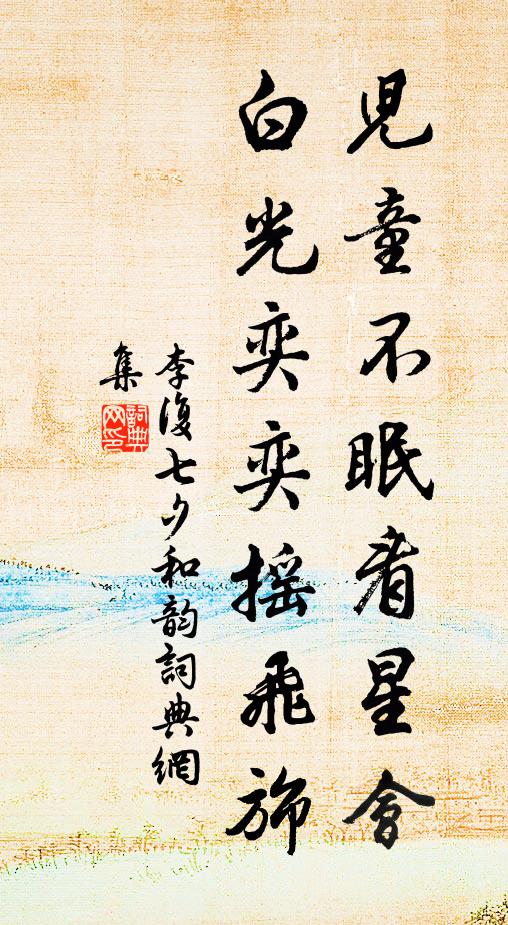 兒童不眠看星會
白光奕奕摇飛斾
李復七夕和韵詞典網
集
詞典网印